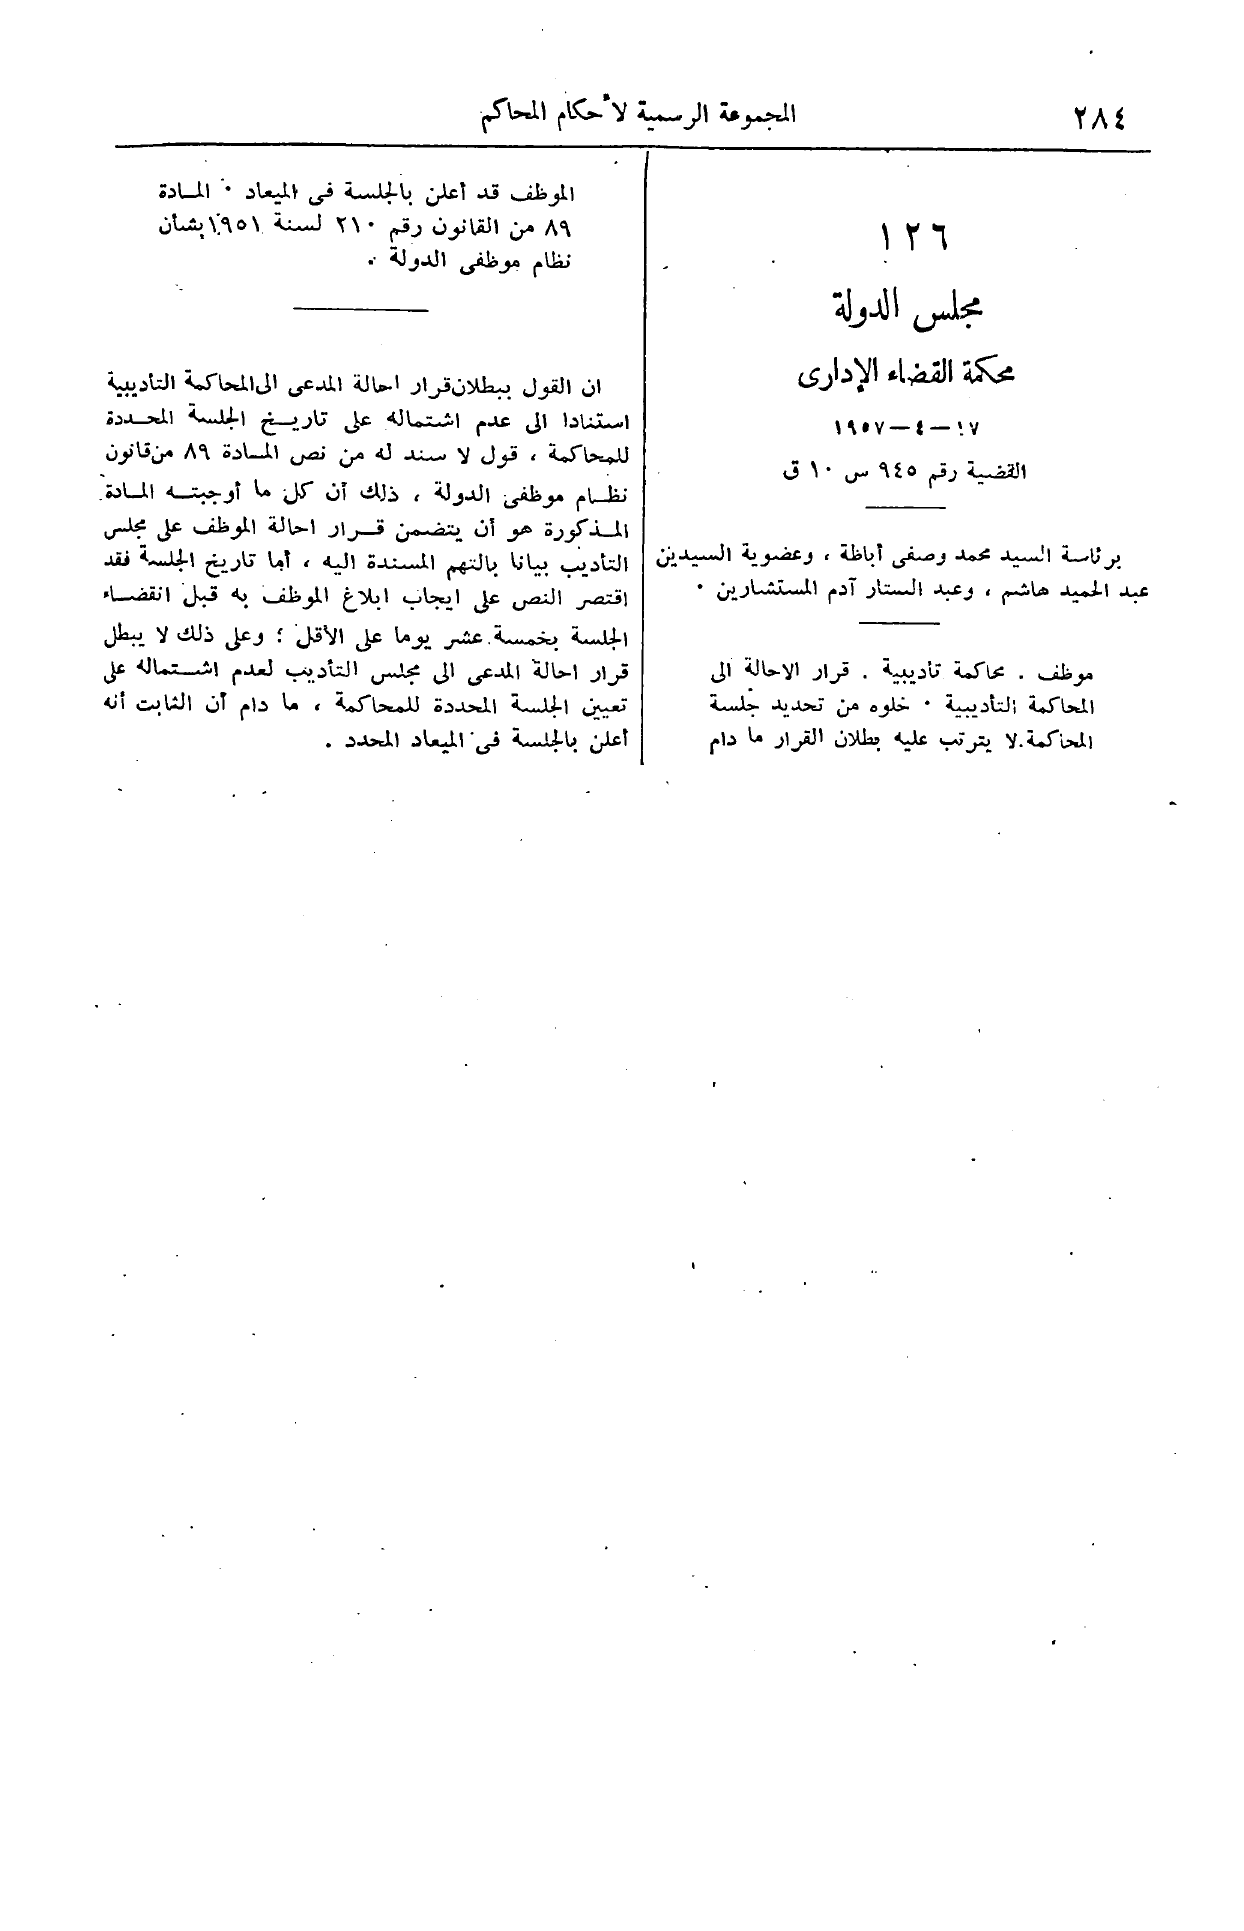 ٢٨٤
المجموعة الرسمية لأحكام المحاكم
١٢٦
مجلس الدولة
محكمة القضاء الإدارى
١٧ — ٤ — ١٩٥٧
القضية رقم ٩٤٥ س ١٠ ق
برئاسة السيد محمد وصفى أباظة ، وعضوية السيدين
عبد الحميد هاشم ، وعبد الستار آدم المستشارين .
موظف . محاكمة تأديبية . قرار الاحالة الى
المحاكمة التأديبية . خلوه من تحديد جلسة
المحاكمة . لا يترتب عليه بطلان القرار ما دام
الموظف قد أعلن بالجلسة فى الميعاد . المادة
٨٩ من القانون رقم ٢١٠ لسنة ١٩٥١ بشأن
نظام موظفى الدولة .
ان القول ببطلان قرار احالة المدعى الى المحاكمة التأديبية
استنادا الى عدم اشتماله على تاريخ الجلسة المحددة
للمحاكمة ، قول لا سند له من نص المادة ٨٩ من قانون
نظام موظفى الدولة ، ذلك أن كل ما أوجبته المادة
المذكورة هو أن يتضمن قرار احالة الموظف على مجلس
التأديب بيانا بالتهم المسندة اليه ، أما تاريخ الجلسة فقد
اقتصر النص على ايجاب ابلاغ الموظف به قبل انقضاء
الجلسة بخمسة عشر يوما على الأقل ؛ وعلى ذلك لا يبطل
قرار احالة المدعى الى مجلس التأديب لعدم اشتماله على
تعيين الجلسة المحددة للمحاكمة ، ما دام أن الثابت أنه
أعلن بالجلسة فى الميعاد المحدد .